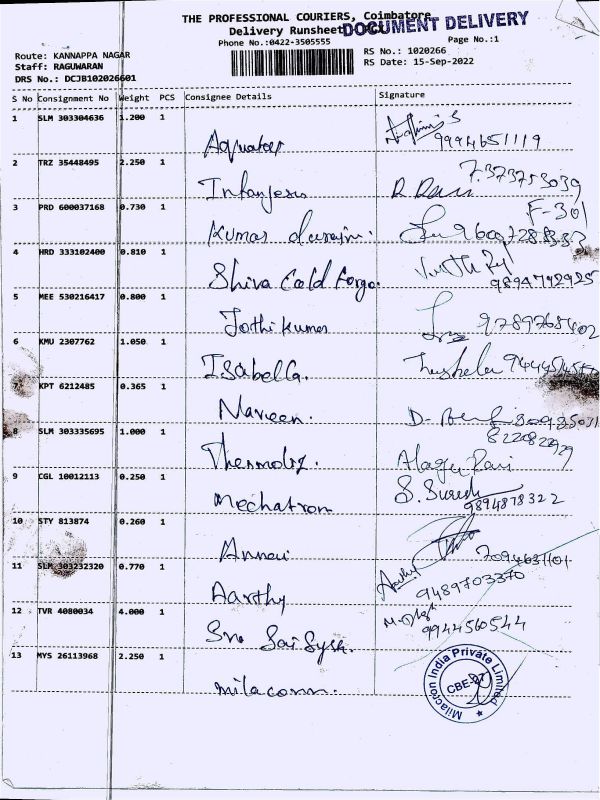 THE PROFESSIONAL COURIERS, Coimbatore
DOCUMENT DELIVERY
Delivery Runsheet
Phone No.:0422-3505555
Page No.:1
Route: KANNAPPA NAGAR
Staff: RAGUWARAN
DRS No.: DCJB102026601
RS No.: 1020266
RS Date: 15-Sep-2022
S No Consignment No Weight PCS Consignee Details Signature
1 SLM 303304636 1.200 1
Aquatex 9994651119
2 TRZ 35448495 2.250 1
Infanjesus 7.373753039
3 PRD 600037168 0.730 1 F-301
Kumar durajn.
4 HRD 333102400 0.810 1
Shiva Cold Forge. 9894792925
5 MEE 530216417 0.800 1
Jothi kumar 9789768402
6 KMU 2307762 1.050 1
Isabella.
7 KPT 6212485 0.365 1
Naveen.
8 SLM 303335695 1.000 1
Alagu Pavi
9 CGL 10012113 0.250 1
Mechatron S. Suresh 9894878322
10 STY 813874 0.260 1
Annai 7094631101
11 SLM 303232320 0.770 1
Aarthy Aarthy 9489703370
12 TVR 4080034 4.000 1
Sri Sai Sysh. 9944560544
13 MYS 26113968 2.250 1
milacorn.
Milacron India Private Limited
CBE-27